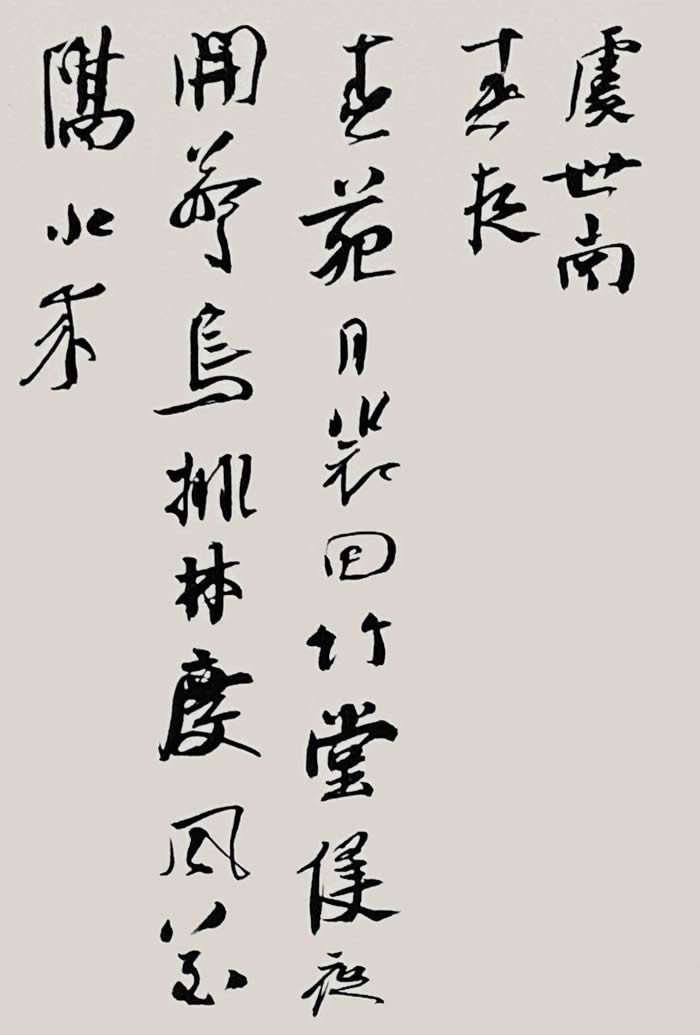 虞世南
春夜
春苑月裴回竹堂侵夜
開驚鳥排林度風花
隔水來